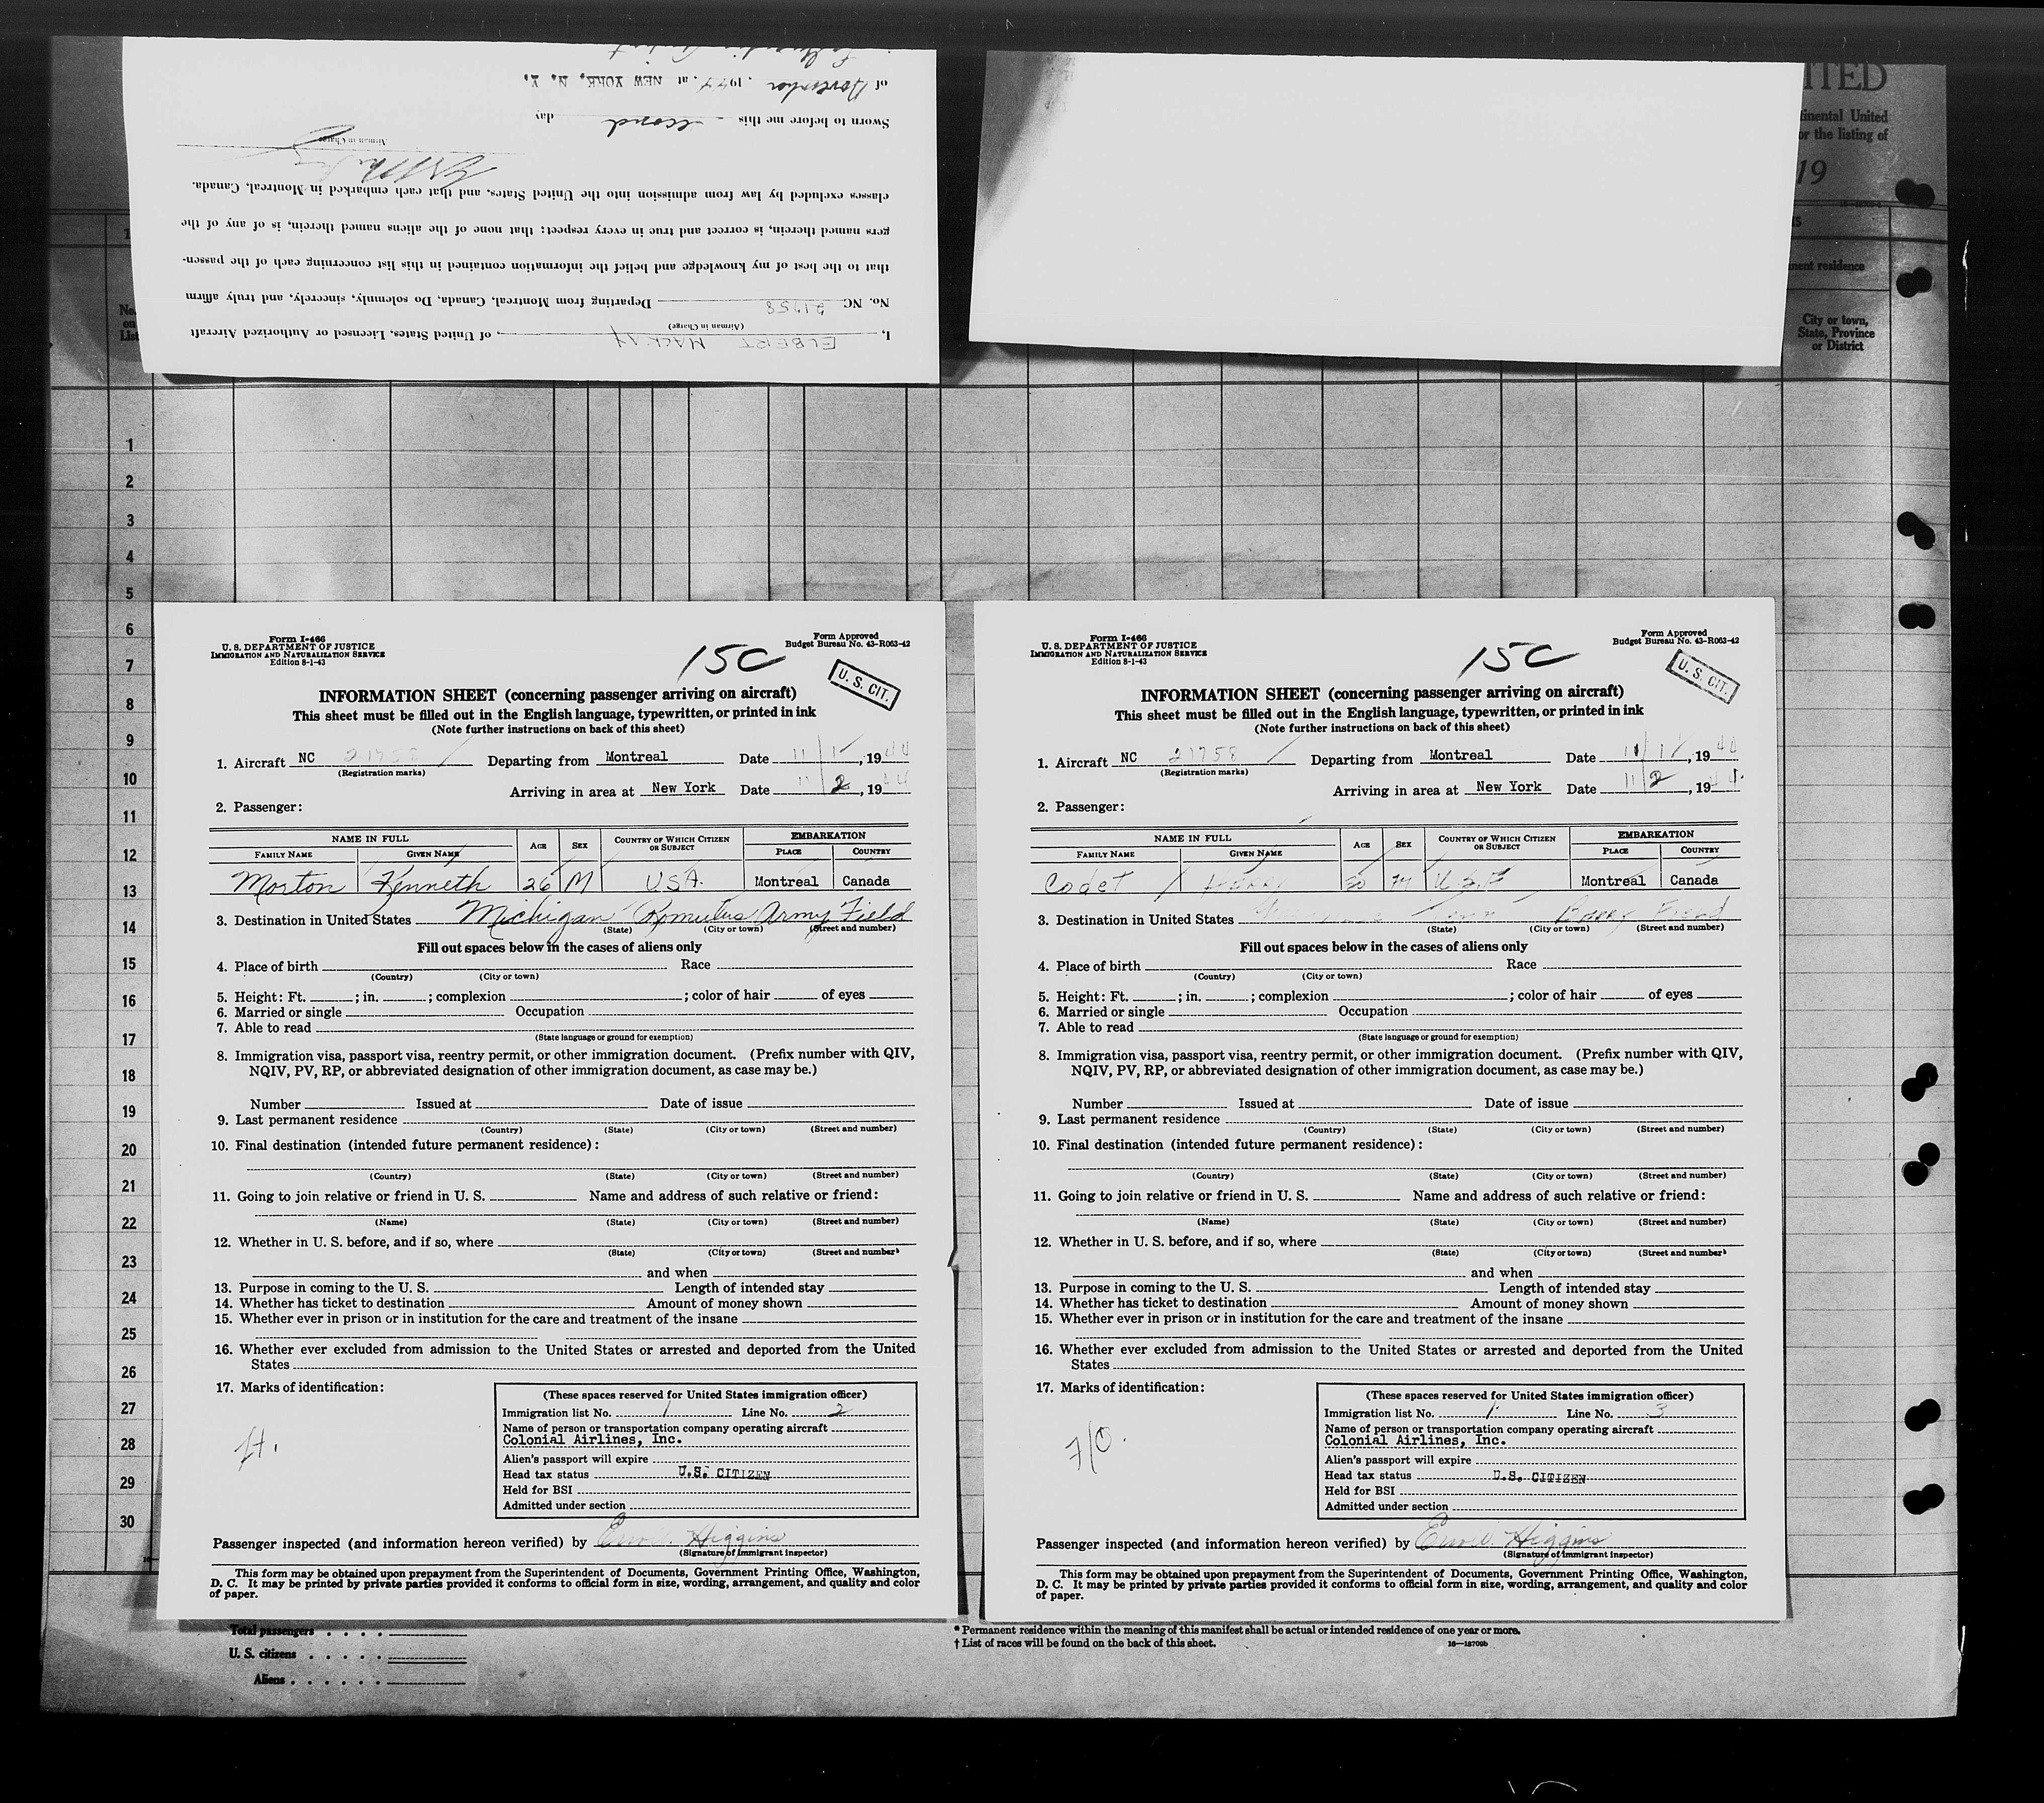 of November, 1944, at NEW YORK, N. Y.
Sworn to before me this second day
Airman in Charge
classes excluded by law from admission into the United States, and that each embarked in Montreal, Canada.
gers named therein, is correct and true in every respect; that none of the aliens named therein, is of any of the
that to the best of my knowledge and belief the information contained in this list concerning each of the passen-
No. NC 21758 Departing from Montreal, Canada, Do solemnly, sincerely, and truly affirm
(Airman in Charge)
I, ELBERT MACKAY, of United States, Licensed or Authorized Aircraft
ITED
tinental United
or the listing of
19
15
nent residence
City or town,
State, Province
or District
No.
on
List
1
2
3
4
5
6
7
8
9
10
11
12
13
14
15
16
17
18
19
20
21
22
23
24
25
26
27
28
29
30
Form I-466
U. S. DEPARTMENT OF JUSTICE
IMMIGRATION AND NATURALIZATION SERVICE
Edition 8-1-43
15C
Form Approved
Budget Bureau No. 43-R063-42
U. S. CIT.
INFORMATION SHEET (concerning passenger arriving on aircraft)
This sheet must be filled out in the English language, typewritten, or printed in ink
(Note further instructions on back of this sheet)
1. Aircraft NC 21758 Departing from Montreal Date 11/1, 1944
(Registration marks)
Arriving in area at New York Date 11/2, 1944
2. Passenger:
NAME IN FULL AGE SEX COUNTRY OF WHICH CITIZEN OR SUBJECT EMBARKATION
FAMILY NAME GIVEN NAME PLACE COUNTRY
Morton Kenneth 26 M USA. Montreal Canada
3. Destination in United States Michigan Romulus Army Field
(State) (City or town) (Street and number)
Fill out spaces below in the cases of aliens only
4. Place of birth Race
(Country) (City or town)
5. Height: Ft. ; in. ; complexion ; color of hair of eyes
6. Married or single Occupation
7. Able to read
(State language or ground for exemption)
8. Immigration visa, passport visa, reentry permit, or other immigration document. (Prefix number with QIV,
NQIV, PV, RP, or abbreviated designation of other immigration document, as case may be.)
Number Issued at Date of issue
9. Last permanent residence
(Country) (State) (City or town) (Street and number)
10. Final destination (intended future permanent residence):
(Country) (State) (City or town) (Street and number)
11. Going to join relative or friend in U. S. Name and address of such relative or friend:
(Name) (State) (City or town) (Street and number)
12. Whether in U. S. before, and if so, where
(State) (City or town) (Street and number)
and when
13. Purpose in coming to the U. S. Length of intended stay
14. Whether has ticket to destination Amount of money shown
15. Whether ever in prison or in institution for the care and treatment of the insane
16. Whether ever excluded from admission to the United States or arrested and deported from the United
States
17. Marks of identification:
(These spaces reserved for United States immigration officer)
Immigration list No. 1 Line No. 2
Name of person or transportation company operating aircraft
Colonial Airlines, Inc.
Alien's passport will expire
Head tax status U.S. CITIZEN
Held for BSI
Admitted under section
Passenger inspected (and information hereon verified) by Higgins
(Signature of Immigrant inspector)
This form may be obtained upon prepayment from the Superintendent of Documents, Government Printing Office, Washington,
D. C. It may be printed by private parties provided it conforms to official form in size, wording, arrangement, and quality and color
of paper.
Form I-466
U. S. DEPARTMENT OF JUSTICE
IMMIGRATION AND NATURALIZATION SERVICE
Edition 8-1-43
15C
Form Approved
Budget Bureau No. 43-R063-42
U. S. CIT.
INFORMATION SHEET (concerning passenger arriving on aircraft)
This sheet must be filled out in the English language, typewritten, or printed in ink
(Note further instructions on back of this sheet)
1. Aircraft NC 21758 Departing from Montreal Date 11/1, 1944
(Registration marks)
Arriving in area at New York Date 11/2, 1944
2. Passenger:
NAME IN FULL AGE SEX COUNTRY OF WHICH CITIZEN OR SUBJECT EMBARKATION
FAMILY NAME GIVEN NAME PLACE COUNTRY
Codet M Montreal Canada
3. Destination in United States
(State) (City or town) (Street and number)
Fill out spaces below in the cases of aliens only
4. Place of birth Race
(Country) (City or town)
5. Height: Ft. ; in. ; complexion ; color of hair of eyes
6. Married or single Occupation
7. Able to read
(State language or ground for exemption)
8. Immigration visa, passport visa, reentry permit, or other immigration document. (Prefix number with QIV,
NQIV, PV, RP, or abbreviated designation of other immigration document, as case may be.)
Number Issued at Date of issue
9. Last permanent residence
(Country) (State) (City or town) (Street and number)
10. Final destination (intended future permanent residence):
(Country) (State) (City or town) (Street and number)
11. Going to join relative or friend in U. S. Name and address of such relative or friend:
(Name) (State) (City or town) (Street and number)
12. Whether in U. S. before, and if so, where
(State) (City or town) (Street and number)
and when
13. Purpose in coming to the U. S. Length of intended stay
14. Whether has ticket to destination Amount of money shown
15. Whether ever in prison or in institution for the care and treatment of the insane
16. Whether ever excluded from admission to the United States or arrested and deported from the United
States
17. Marks of identification:
7/0.
(These spaces reserved for United States immigration officer)
Immigration list No. 1 Line No. 3
Name of person or transportation company operating aircraft
Colonial Airlines, Inc.
Alien's passport will expire
Head tax status U.S. CITIZEN
Held for BSI
Admitted under section
Passenger inspected (and information hereon verified) by Higgins
(Signature of Immigrant inspector)
This form may be obtained upon prepayment from the Superintendent of Documents, Government Printing Office, Washington,
D. C. It may be printed by private parties provided it conforms to official form in size, wording, arrangement, and quality and color
of paper.
Total passengers . . . .
U. S. citizens . . . . .
Aliens . . . . . .
* Permanent residence within the meaning of this manifest shall be actual or intended residence of one year or more.
† List of races will be found on the back of this sheet. 16—18709b